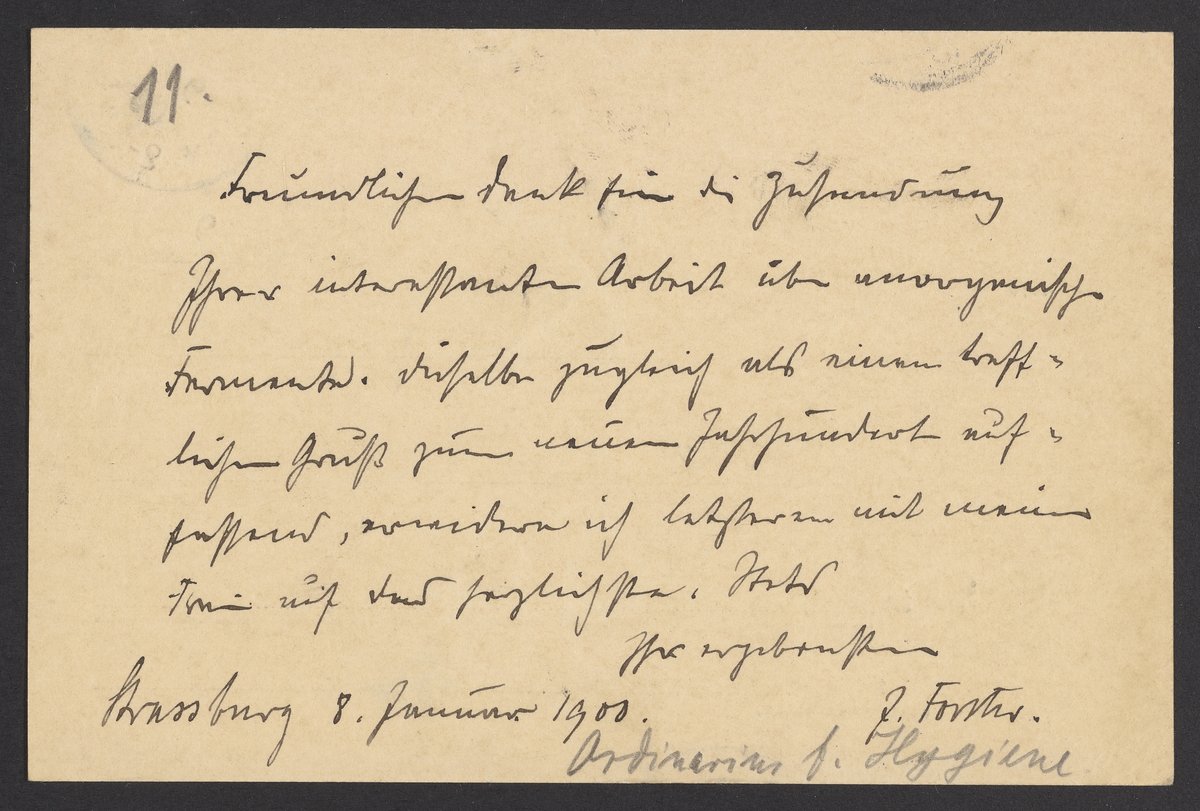 11.
Freundlichen Dank für die Zusendung
Ihrer interessanten Arbeit über anorganische
Fermente. Dieselbe zugleich als einen treff-
lichen Gruß zum neuen Jahrhundert auf-
fassend, erwidere ich letzteren mit meiner
Frau auf das herzlichste. Stets
Ihr ergebenster
Strassburg 8. Januar 1900.
J. Forster.
Ordinarius f. Hygiene